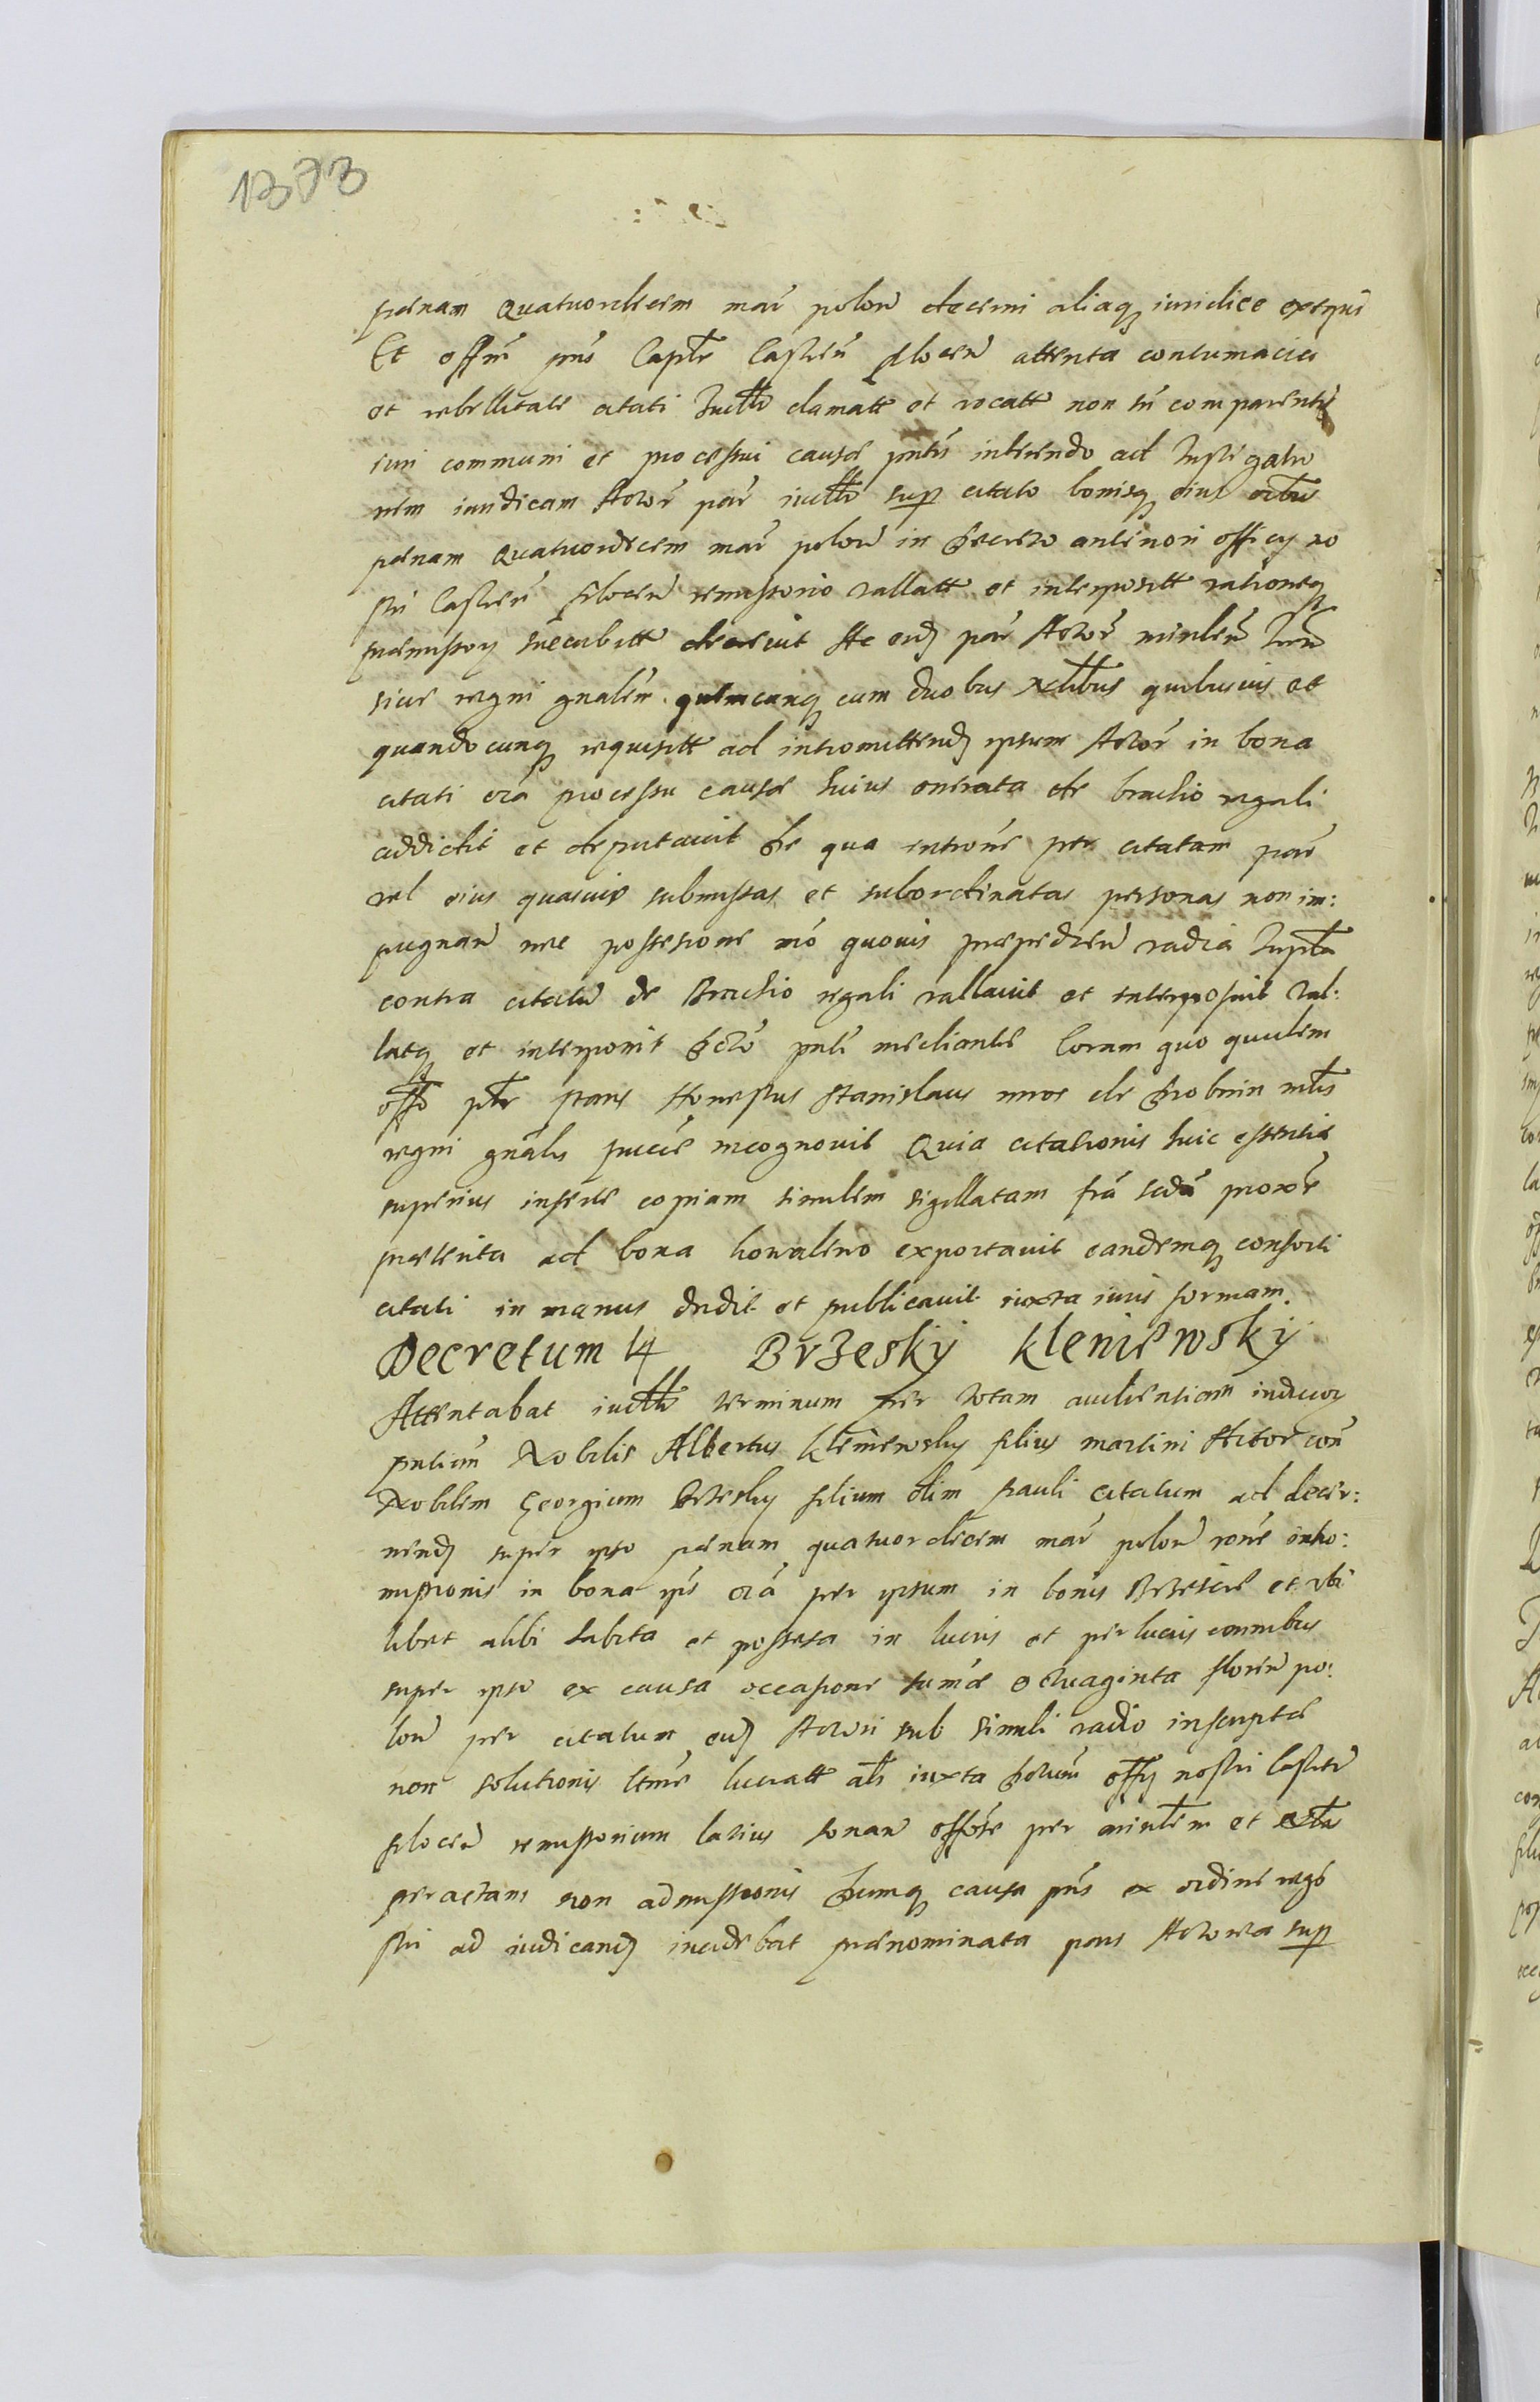 1373
pœnam quatuordecim mar polon decerni aliaq iuridice exequi
Et offm pns Capte Castren plocen attenta contumacia
et rebellitate citati Juclr clamatt et vocatt non tn comparentis
iuri communi et processui causæ pntis intendo ad Instigatio
nem iuridicam Actor par iucltr sup citato bonisq eius
pœnam quatuordecim mar polon in decreto anteriori officy no
stri Castren plocen remissorio vallatt et interpositt rationeq
præmissor succubitt decrevit Ac eid par Actor minlem
sive regni gnalem quemcunq cum duobus nobilibus quibusvis et
quandocunq requisitt ad intromittend ipsum Actor in bona
citati oia processu causæ huius onerata de brachio regali
addidit et deputavit De qua introne per citatam par
vel eius quasvis submissas et subordinatas personas non im:
pugnan nec possesione mo quovis præpedien vadia
contra citatu de Brachio regali vallavit et interposuit Val:
latq et interponit dcto pnti mediante Coram quo quidem
offo pte stans Honestus Stanislaus mros de Drobnin mlis
regni gnalis pucce recognovit Quia citationis huic essentiæ
superius insertæ copiam similem sigillatam fra scda proxe
præterita ad bona Kowalewo exportavit eandemq consorti
citati in manus dedit et publicavit iuxta iuris formam.
Decretum 14 Brzeskÿ Kleniewskÿ
Attentabat iucltr terminum per totam audientiam iudicior
pntium Nobilis Albertus Kleniewsky filius martini Actor con
Nobilem Georgium Brzesky filium olim Pauli citatum ad decer:
nend super ipso pœnam quatuordecim mar polon rone intro:
missionis in bona ips oia per ipsum in bonis Brzescie et ubi
libet alibi habita et possessa in lucris et per lucris omnibus
super ipso ex causa occasione sumæ octuaginta floren po:
lon per citatum eid Actori sub simili vadio inscriptæ
non solutionis ltme lucratt als iuxta decretum offy nostri Castren
plocen remissorium latius sonan offose per minlem et
peractam non admissionis Dumq causa pns ex ordine rege
stri ad iudicand incidebat prænominata pars Actorea sup